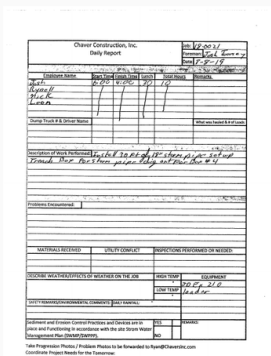 Chaver Construction, Inc.
Daily Report
Job: 18-0021
Foreman: Josh
Date: 5-8-19
Employee Name Start Time Finish Time Lunch Total Hours Remarks
Josh 6:00 4:00 30 10
Ryan
Nick
Leon
Dump Truck # & Driver Name What was hauled & # of Loads
Description of Work Performed: Install 20 ft of 18" storm pipe set up
Trench Box for storm pipe + dig out for Box # 4
Problems Encountered:
MATERIALS RECEIVED UTILITY CONFLICT INSPECTIONS PERFORMED OR NEEDED:
DESCRIBE WEATHER/EFFECTS OF WEATHER ON THE JOB HIGH TEMP EQUIPMENT
210
LOW TEMP loader
SAFETY REMARKS/ENVIRONMENTAL COMMENTS: DAILY RAINFALL:
Sediment and Erosion Control Practices and Devices are in YES REMARKS:
place and Functioning in accordance with the Storm Water
Management Plan (SWMP/SWPPP). NO
Take Progression Photos / Problem Photos to be forwarded to Ryan@ChaversInc.com
Coordinate Project Needs for the Tomorrow: